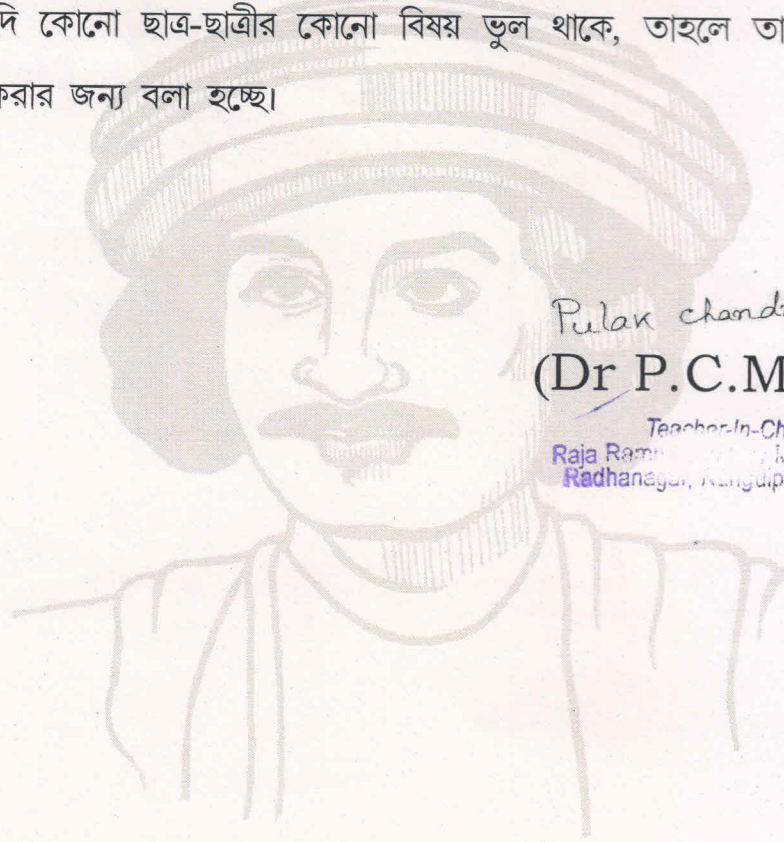 দি কোনো ছাত্র-ছাত্রীর কোনো বিষয় ভুল থাকে, তাহলে তা
করার জন্য বলা হচ্ছে।
Pulak chand
(Dr P.C.M
Teacher-In-Ch
Raja Ram
Radhanagar,